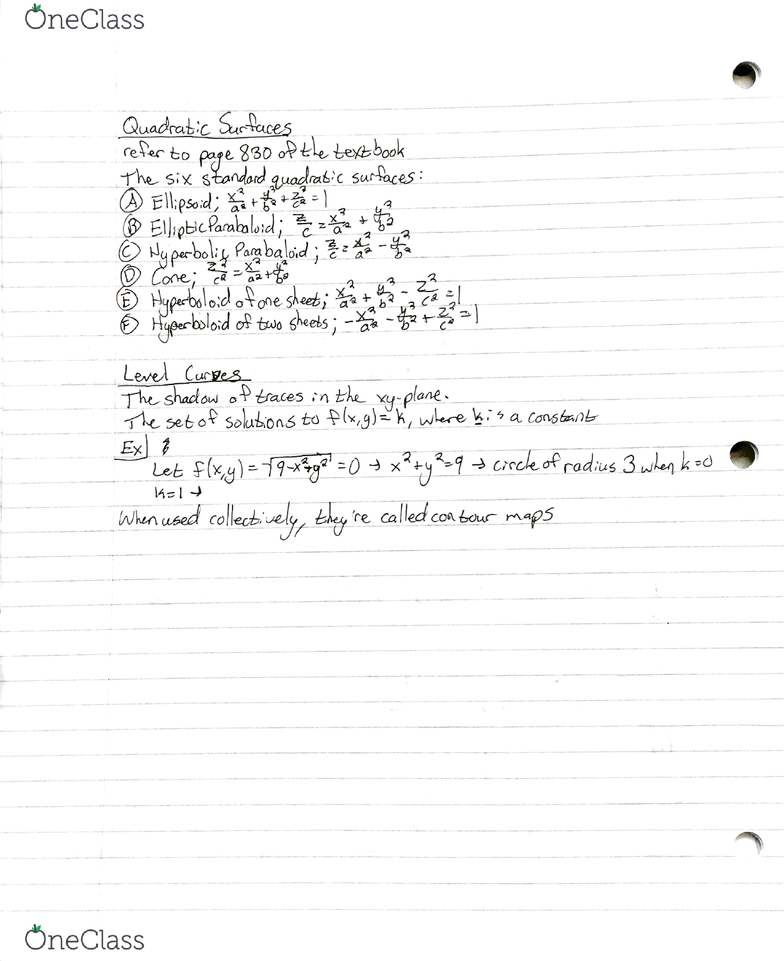 OneClass
Quadratic Surfaces
refer to page 830 of the textbook
The six standard quadratic surfaces:
Ⓐ Ellipsoid; x²/a² + y²/b² + z²/c² = 1
Ⓑ Elliptic Parabaloid; z/c = x²/a² + y²/b²
Ⓒ Hyperbolic Parabaloid; z/c = x²/a² - y²/b²
Ⓓ Cone; z²/c² = x²/a² + y²/b²
Ⓔ Hyperboloid of one sheet; x²/a² + y²/b² - z²/c² = 1
Ⓕ Hyperboloid of two sheets; -x²/a² - y²/b² + z²/c² = 1
Level Curves
The shadow of traces in the xy-plane.
The set of solutions to f(x,y)=k, where k is a constant
Ex
Let f(x,y) = √9-x²-y² = 0 → x²+y²=9 → circle of radius 3 when k=0
k=1 →
When used collectively, they're called contour maps
OneClass